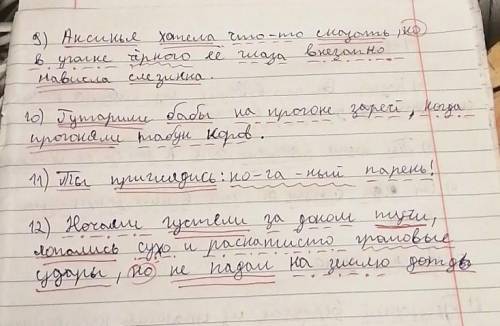 9) Аксинья хател что-то сказать, но
в уголке чёрного её глаза внезапно
нависла слезинка.
10) Гутарили бабы на прогоне зарей, когда
прогоняли табун коров.
11) Ты приглядись: но-га-ный парень!
12) Ночами густели за доном тучи,
лопались сухо и раскатисто громовые
удары, но не падал на землю дождь